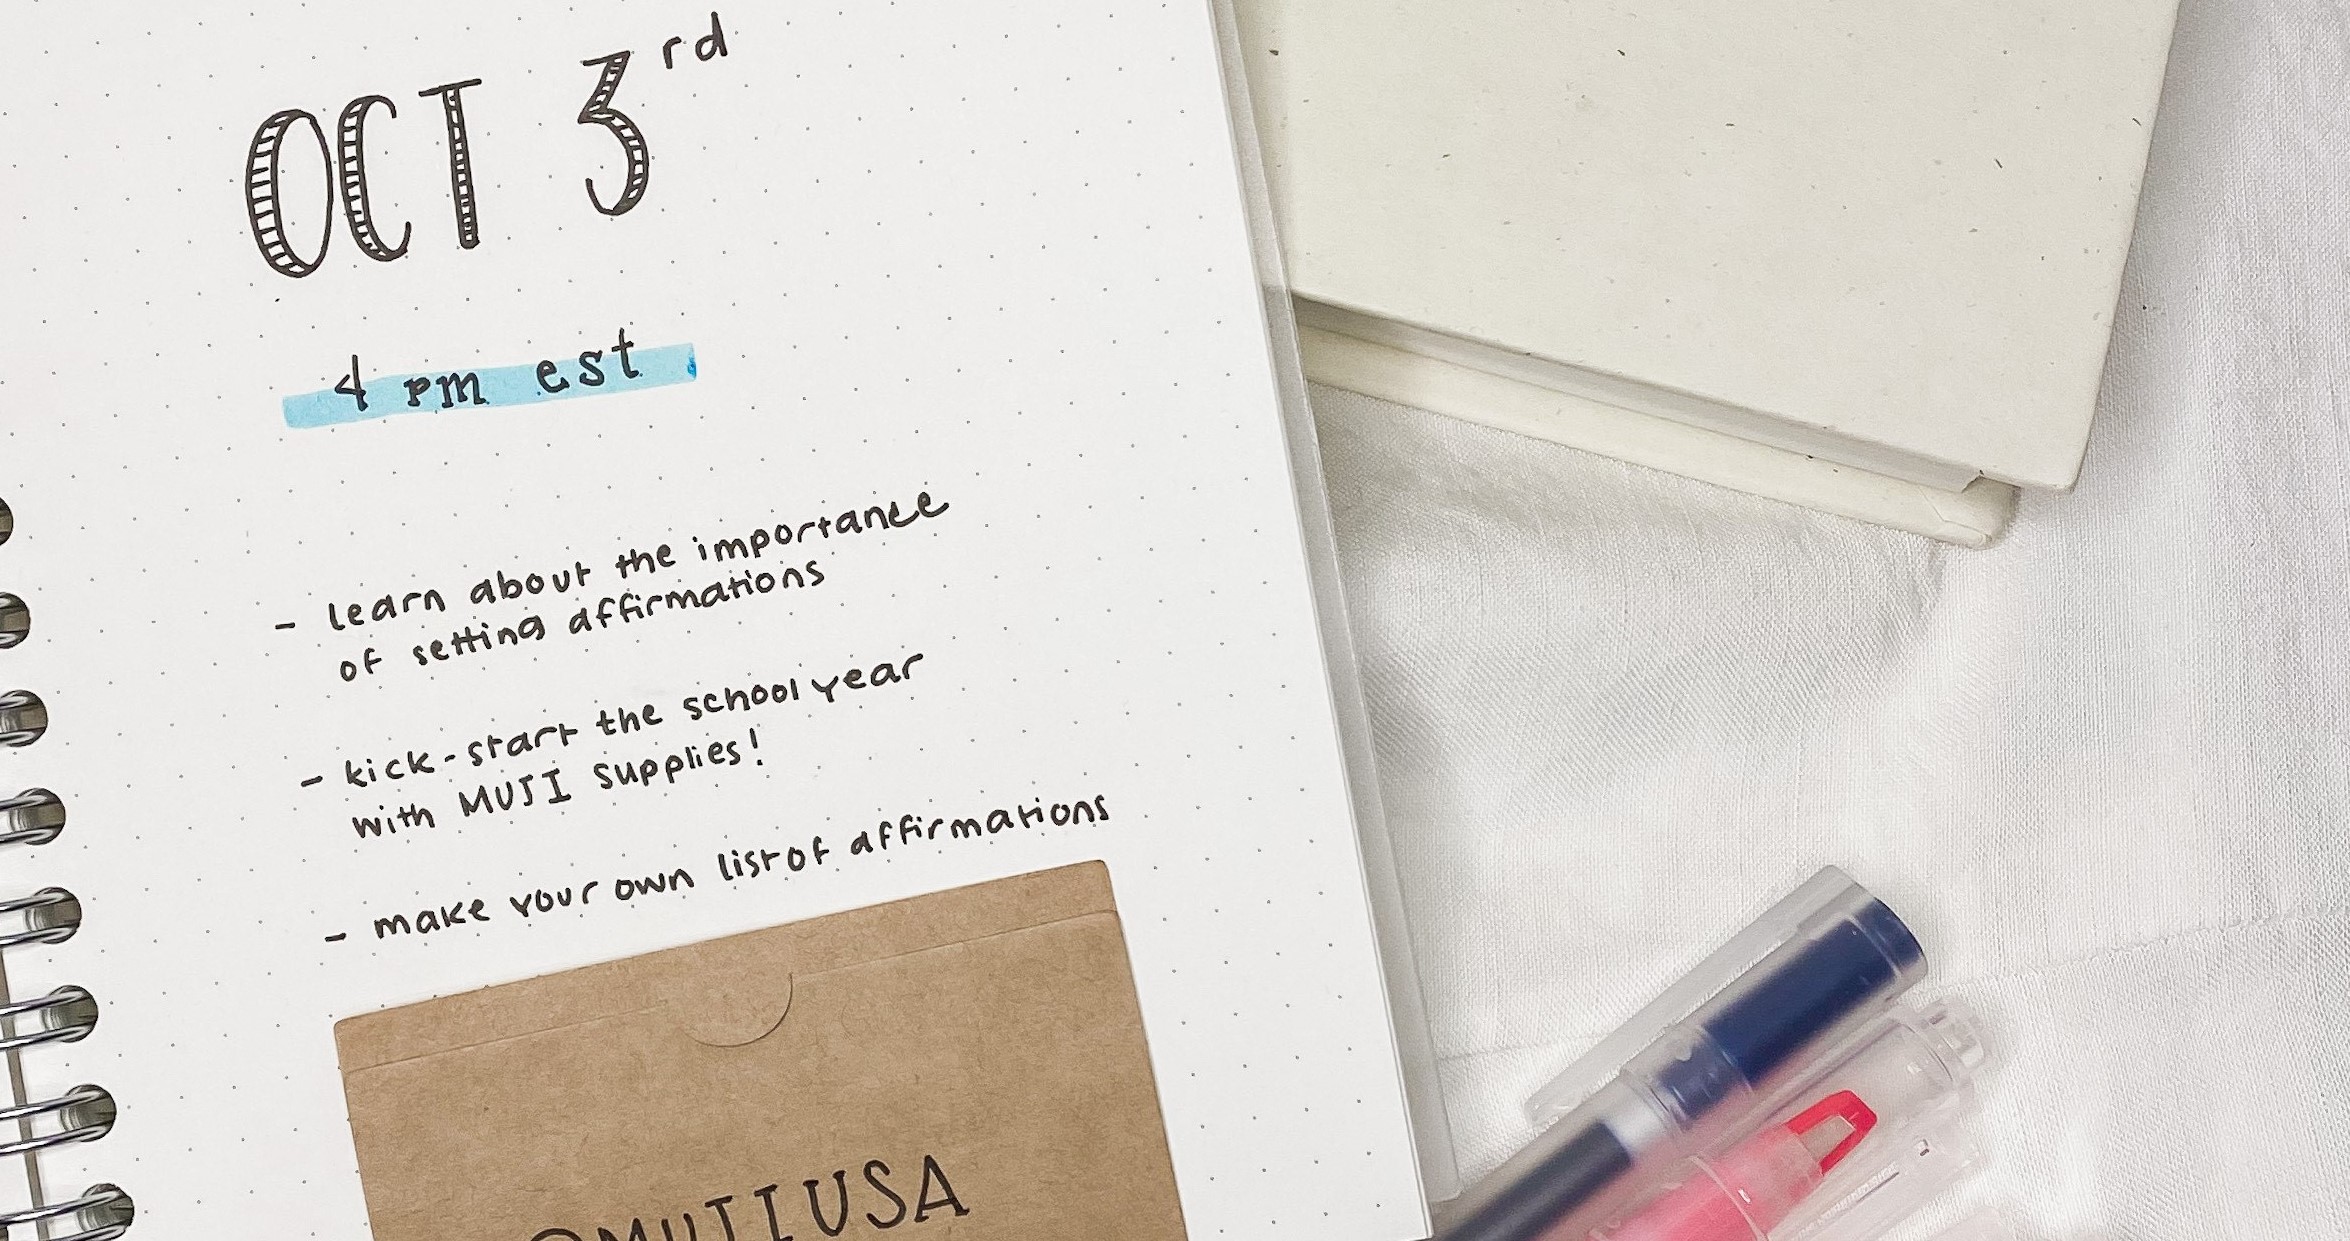 OCT 3rd
4 pm est
- learn about the importance
of setting affirmations
- kick-start the school year
with MUJI supplies!
- make your own list of affirmations
@MUJIUSA